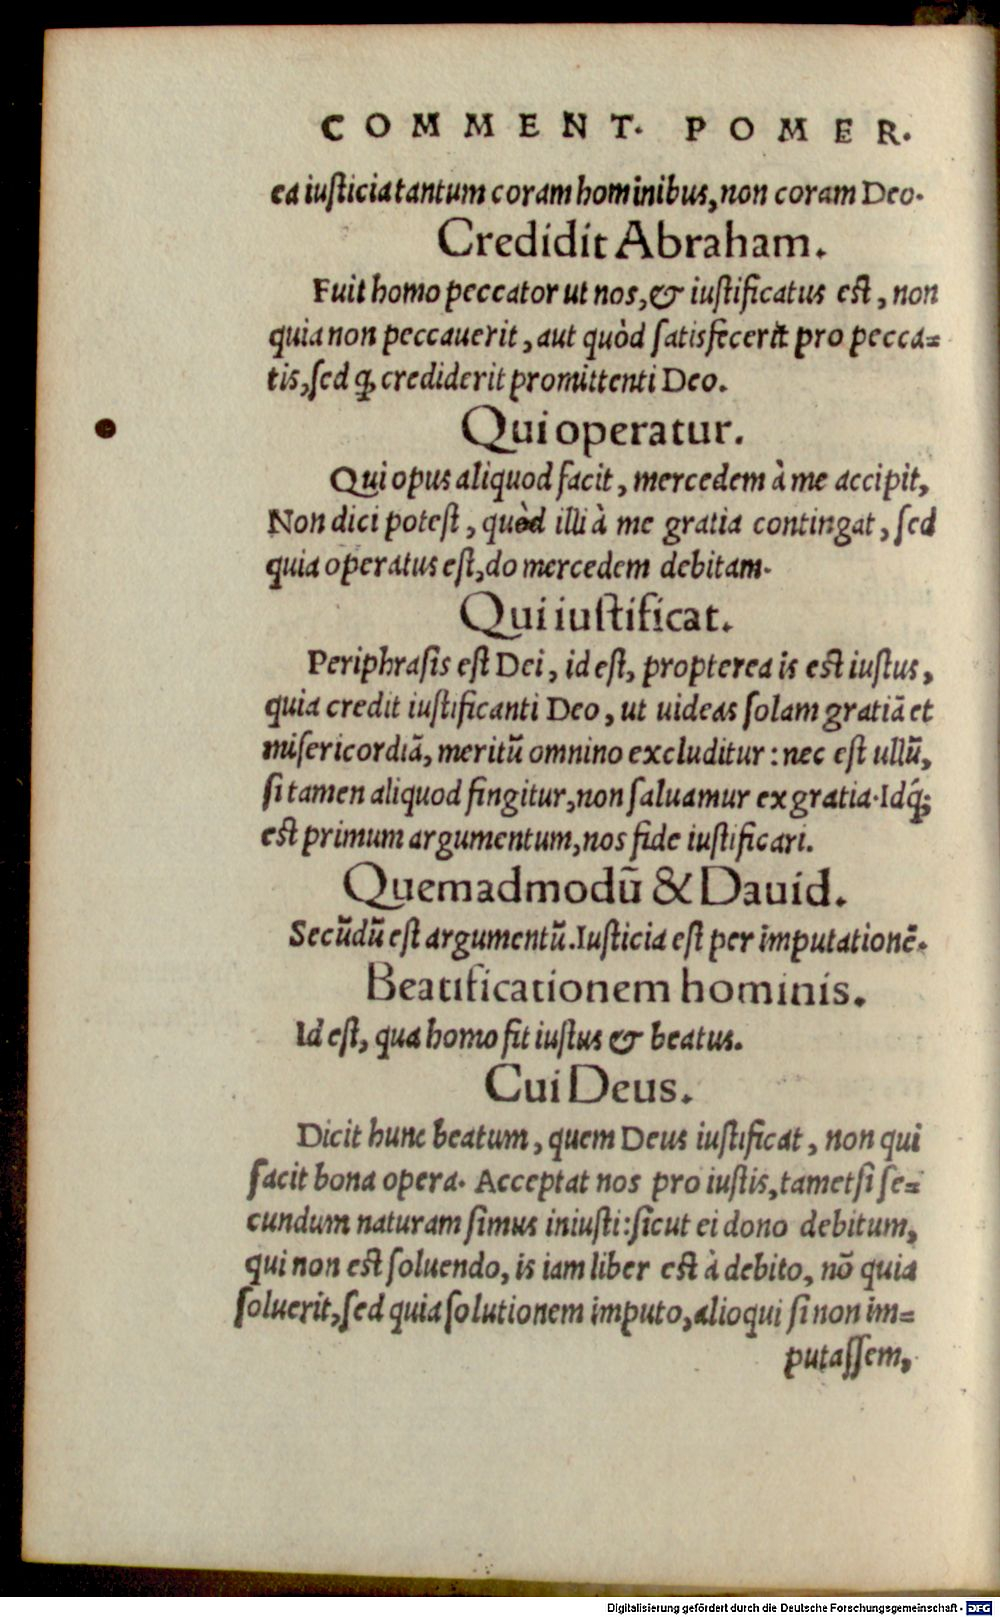 COMMENT. POMER.
ea iusticia tantum coram hominibus, non coram Deo.
Credidit Abraham.
Fuit homo peccator ut nos, & iustificatus est, non
quia non peccauerit, aut quòd satisfecerit pro pecca=
tis, sed ꝙ crediderit promittenti Deo.
Qui operatur.
Qui opus aliquod facit, mercedem à me accipit,
Non dici potest, quòd illi à me gratia contingat, sed
quia operatus est, do mercedem debitam.
Qui iustificat.
Periphrasis est Dei, id est, propterea is est iustus,
quia credit iustificanti Deo, ut uideas solam gratiã et
misericordiã, meritũ omnino excluditur: nec est ullũ,
si tamen aliquod fingitur, non saluamur ex gratia. Idq́;
est primum argumentum, nos fide iustificari.
Quemadmodũ & Dauid.
Secũdũ est argumentũ. Iusticia est per imputationẽ.
Beatificationem hominis.
Id est, qua homo fit iustus & beatus.
Cui Deus.
Dicit hunc beatum, quem Deus iustificat, non qui
facit bona opera. Acceptat nos pro iustis, tametsi se=
cundum naturam simus iniusti: sicut ei dono debitum,
qui non est soluendo, is iam liber est à debito, nõ quia
soluerit, sed quia solutionem imputo, alioqui si non im=
putassem,
Digitalisierung gefördert durch die Deutsche Forschungsgemeinschaft - DFG